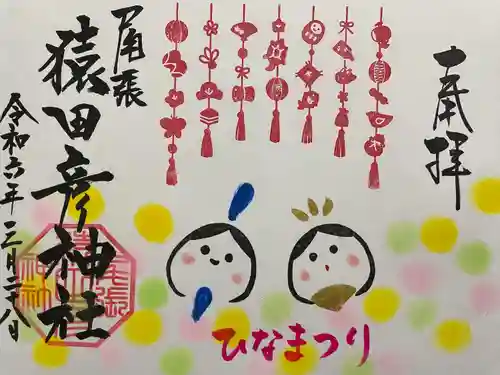 奉拝
ひなまつり
尾張
猿田彦神社
令和六年 月二十八日